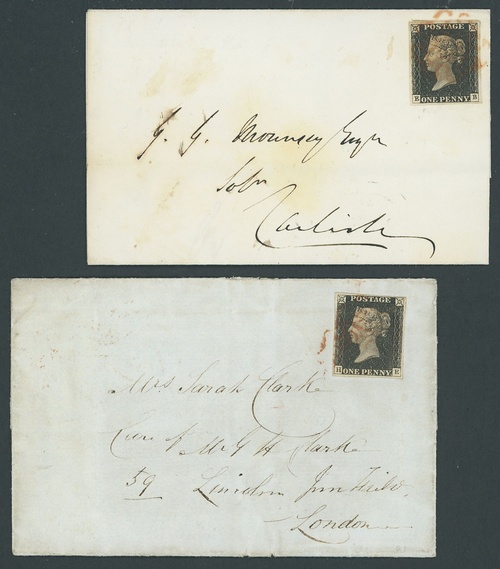 POSTAGE
ONE PENNY
G. G. Mounsey Esqre
Solr
Carlisle
POSTAGE
ONE PENNY
Mrs Sarah Clarke
Care of Mr G H Clarke
59 Lincolns Inn Fields
London